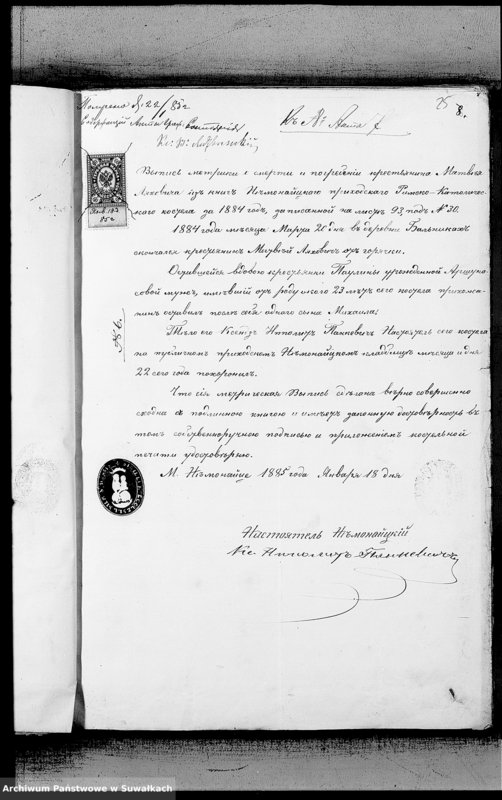 35
8.
№ 22/85 г
Къ № Акта 7.
Янв. 18 д
85 г.
Выпись метрики о смерти и погребеніи крестьянина Матвея
изъ книгъ Нѣмонайцкого приходского Римско-Католиче-
ского костела за 1884 годъ, записанной на листѣ 93, подъ № 30.
1884 года мѣсяца Марта 20 дня въ деревни
окончался крестьянинъ Матвѣй отъ горячки.
Овдовѣвшей вдовою крестьянки Паулины урожденной
мужъ, имѣвшій отъ роду около 23 лѣтъ сего костела прихожа-
нинъ оставилъ послѣ себя одного сына Михаила;
Тѣло его Ксендзъ Ипполитъ Настоятель сего костела
на публичномъ приходскомъ Нѣмонайцкомъ кладбищѣ мѣсяца и дня
22 сего года похоронилъ.
№ 6.
Что сія метрическая Выпись сдѣлана вѣрно совершенно
сходна съ подлинною книгою и имѣетъ законную достовѣрность въ
томъ собственноручною подписью и приложеніемъ костельной
печати удостовѣряю.
М. Нѣмонайце 1885 года Января 18 дня
Настоятель Нѣмонайцкій
Кс. Ипполитъ
Archiwum Państwowe w Suwałkach